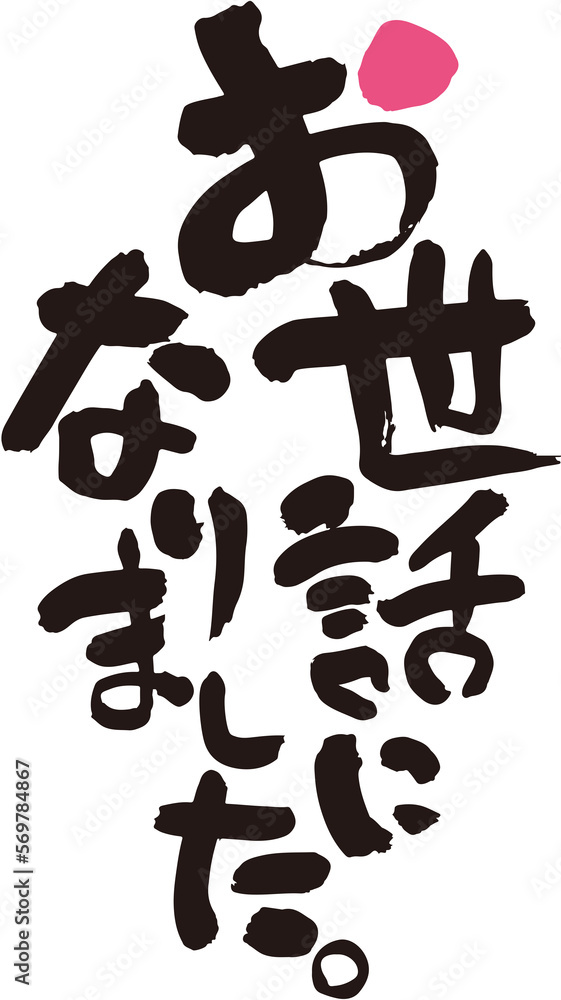 お世話に
なりました。
Adobe Stock | #569784867